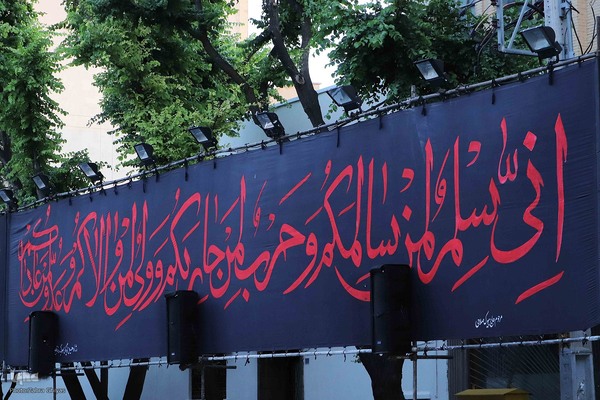 إِنّي سِلمٌ لِمَن سالَمَکُم وَ حَربٌ لِمَن حارَبَکُم وَ وَلِیٌّ لِمَن والاکُم وَ عَدُوٌّ لِمَن عاداکُم